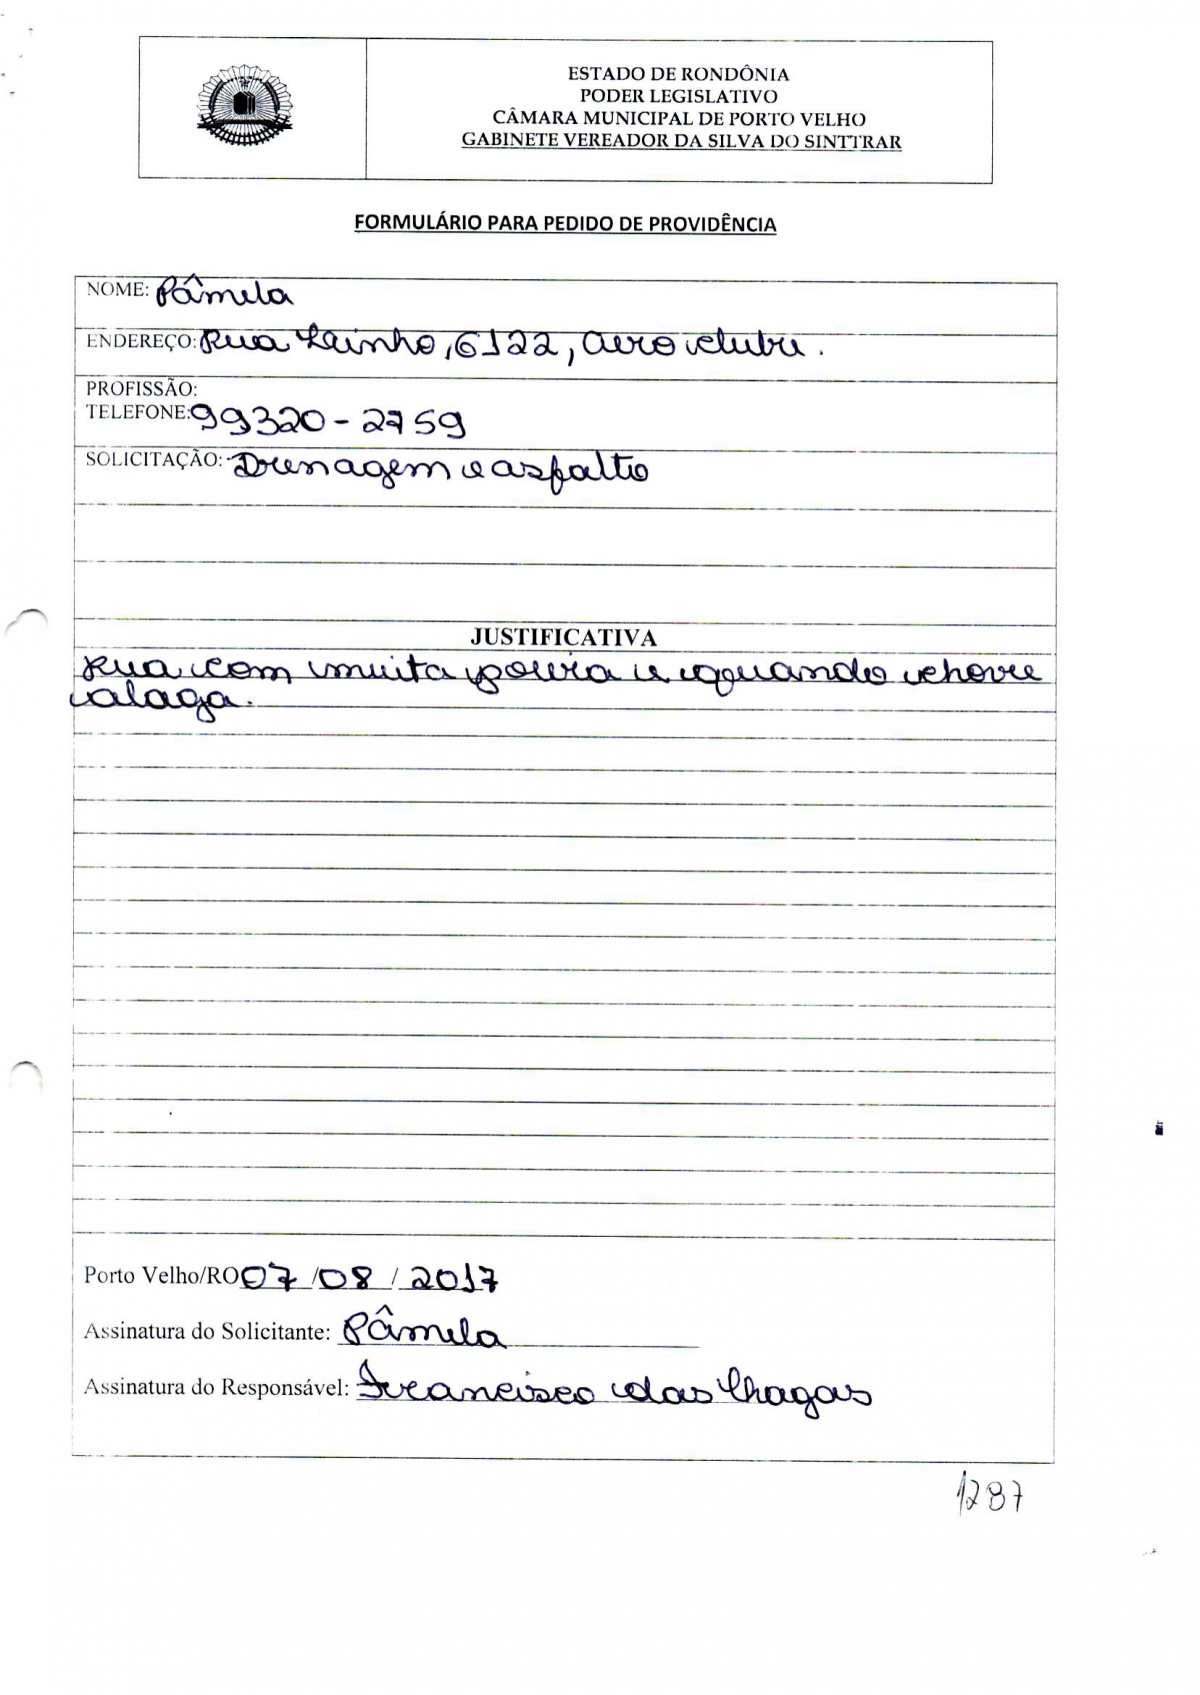 ESTADO DE RONDÔNIA
PODER LEGISLATIVO
CÂMARA MUNICIPAL DE PORTO VELHO
GABINETE VEREADOR DA SILVA DO SINTTRAR
FORMULÁRIO PARA PEDIDO DE PROVIDÊNCIA
NOME: Pâmela
ENDEREÇO: Rua Lainho, 6122, aero clube.
PROFISSÃO:
TELEFONE: 99320-2759
SOLICITAÇÃO: Drenagem e asfalto
JUSTIFICATIVA
Rua com muita poeira e quando chove
alaga.
Porto Velho/RO 07 / 08 / 2017
Assinatura do Solicitante: Pâmela
Assinatura do Responsável: Francisco das Chagas
1287